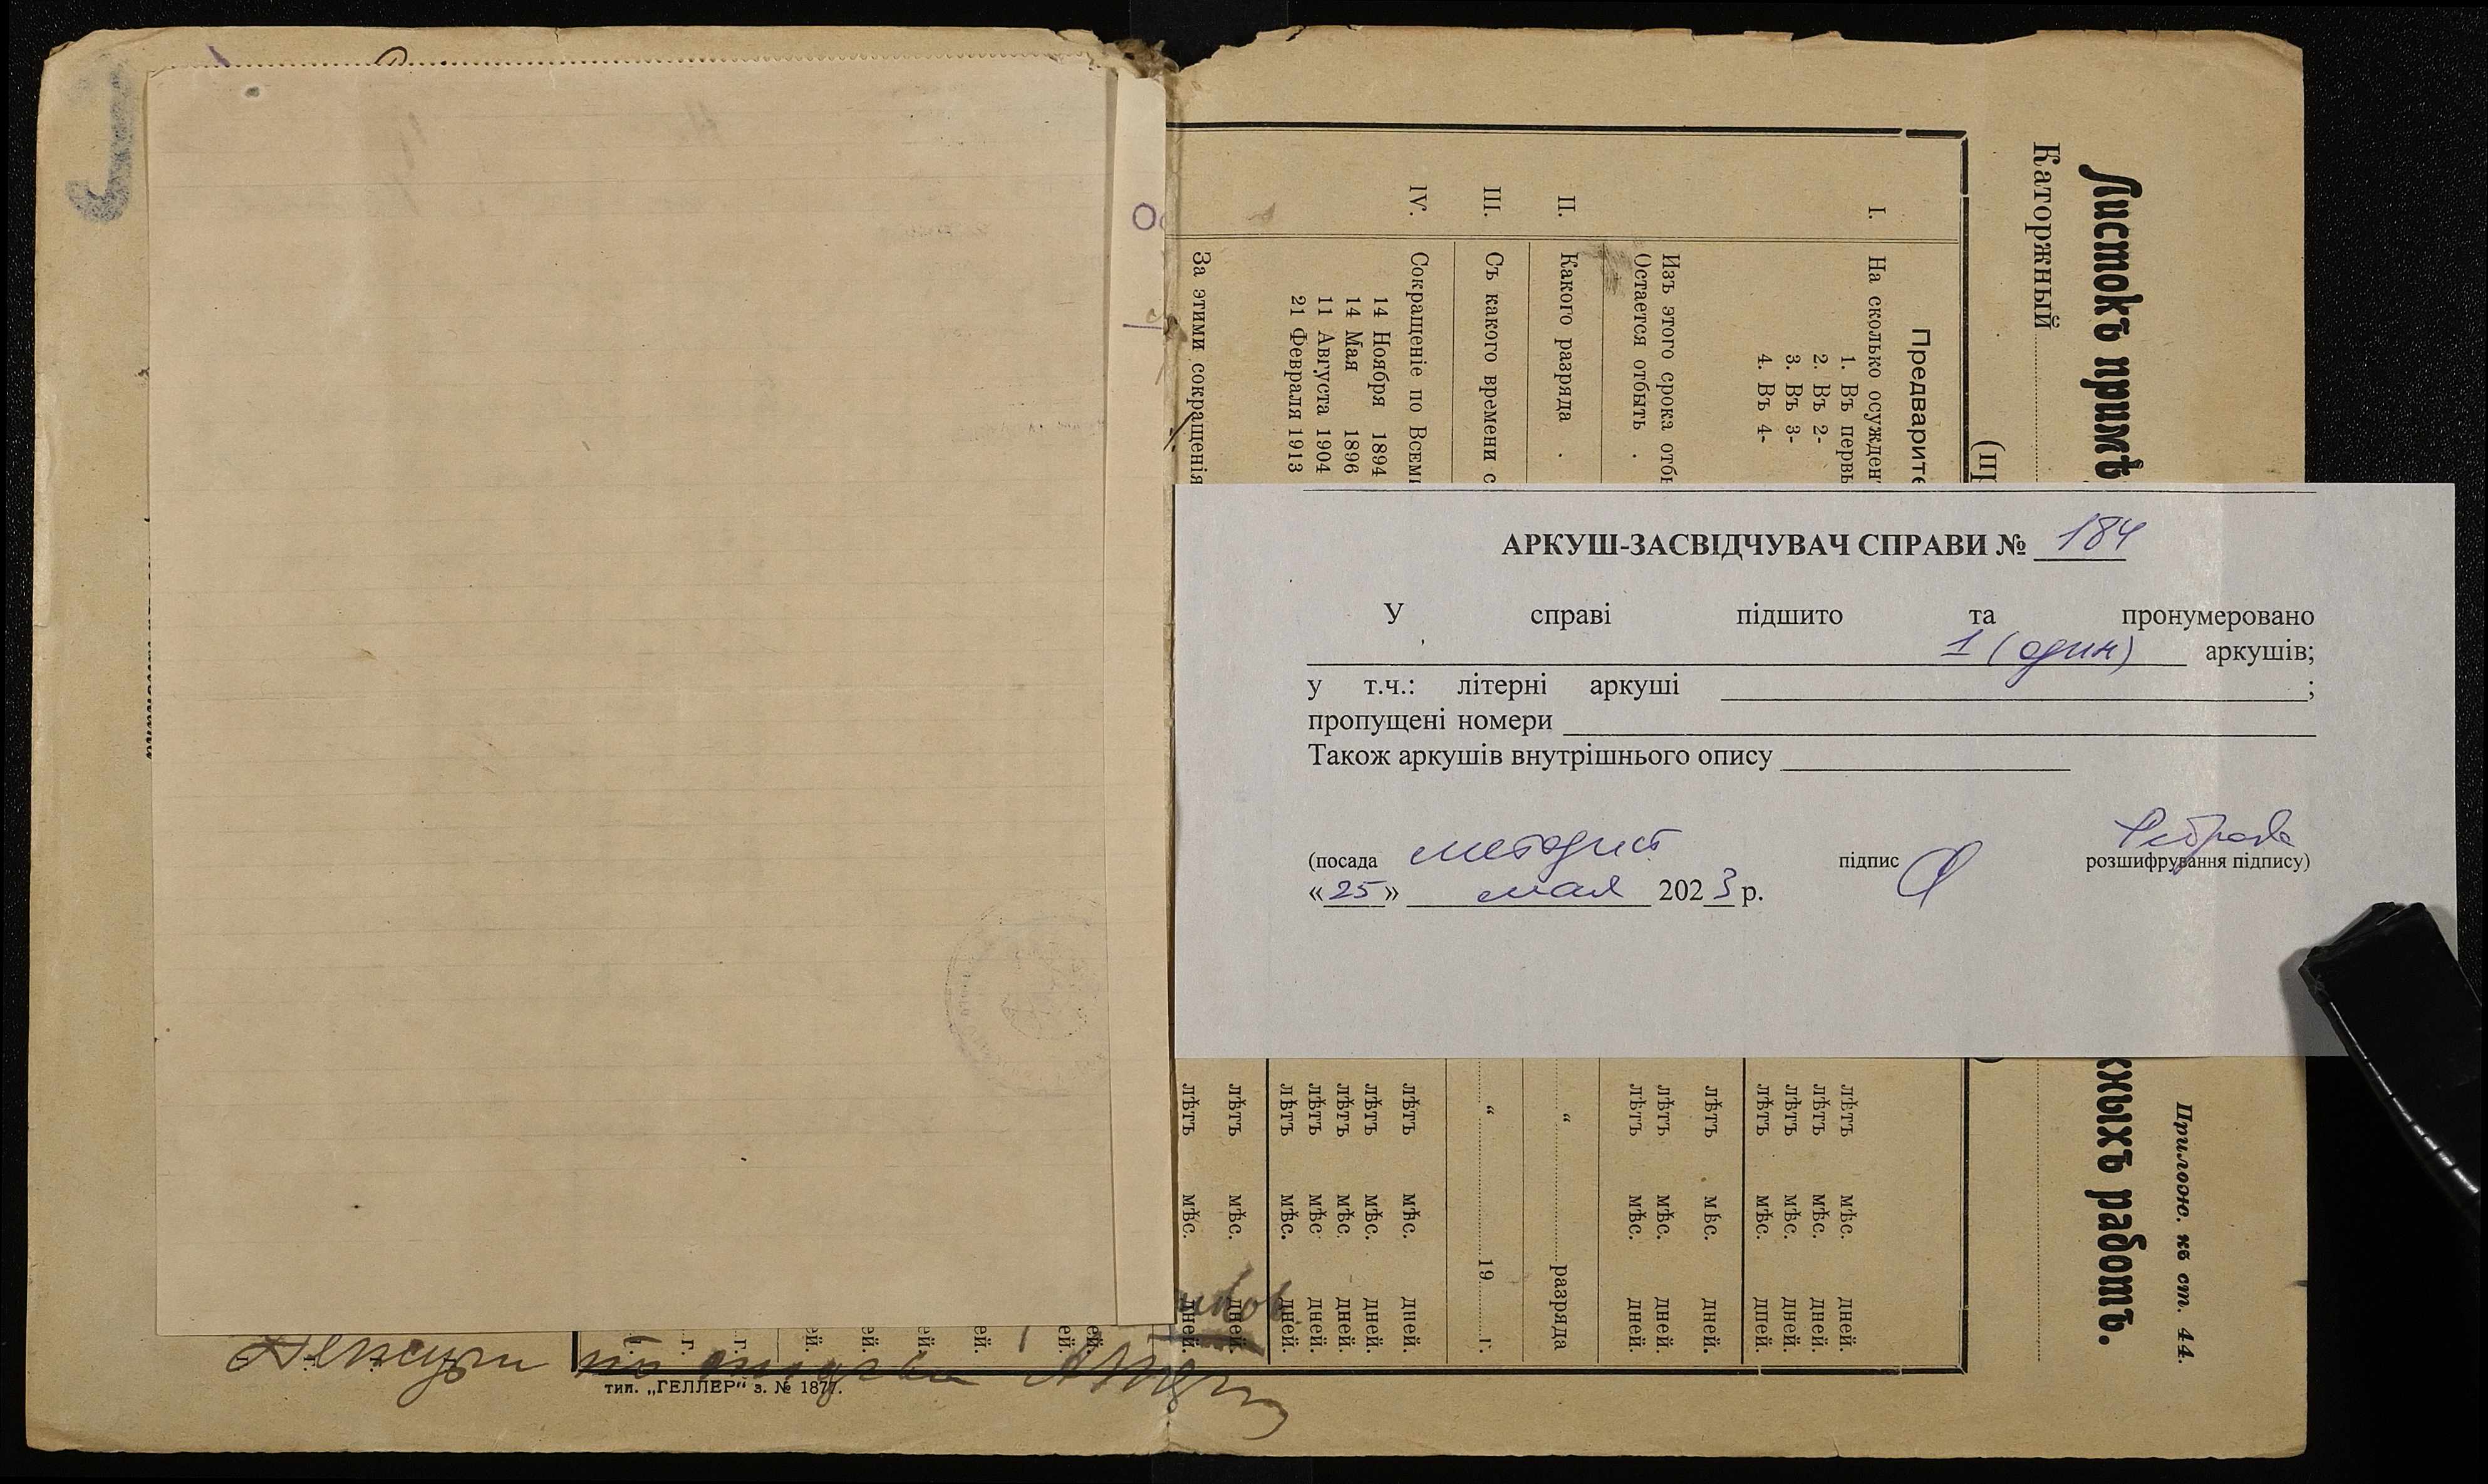 АРКУШ-ЗАСВІДЧУВАЧ СПРАВИ № 184
У справі підшито та пронумеровано
1 (один) аркушів;
у т.ч.: літерні аркуші ;
пропущені номери
Також аркушів внутрішнього опису
(посада методист підпис розшифрування підпису)
«25» мая 2023 р.
Прилож. къ ст. 44.
Листокъ примѣ
жныхъ работъ.
Каторжный
(п
Предварите
I. На сколько осужден
1. Въ первы лѣтъ мѣс. дней.
2. Въ 2- лѣтъ мѣс. дней.
3. Въ 3- лѣтъ мѣс. дней.
4. Въ 4- лѣтъ мѣс. дней.
лѣтъ мѣс. дней.
Изъ этого срока отб лѣтъ мѣс. дней.
Остается отбыть . лѣтъ мѣс. дней.
II. Какого разряда . " разряда
III. Съ какого времени с " 19 г.
IV. Сокращеніе по Всем лѣтъ мѣс. дней.
14 Ноября 1894 лѣтъ мѣс. дней.
14 Мая 1896 лѣтъ мѣс. дней.
11 Августа 1904 лѣтъ мѣс дней.
21 Февраля 1913 лѣтъ мѣс. дней.
лѣтъ мѣс. дней.
За этими сокращенія лѣтъ мѣс. дней.
ей.
ей.
ей.
ей.
ей.
ей.
г.
г.
тип. „ГЕЛЛЕР" з. № 1877.